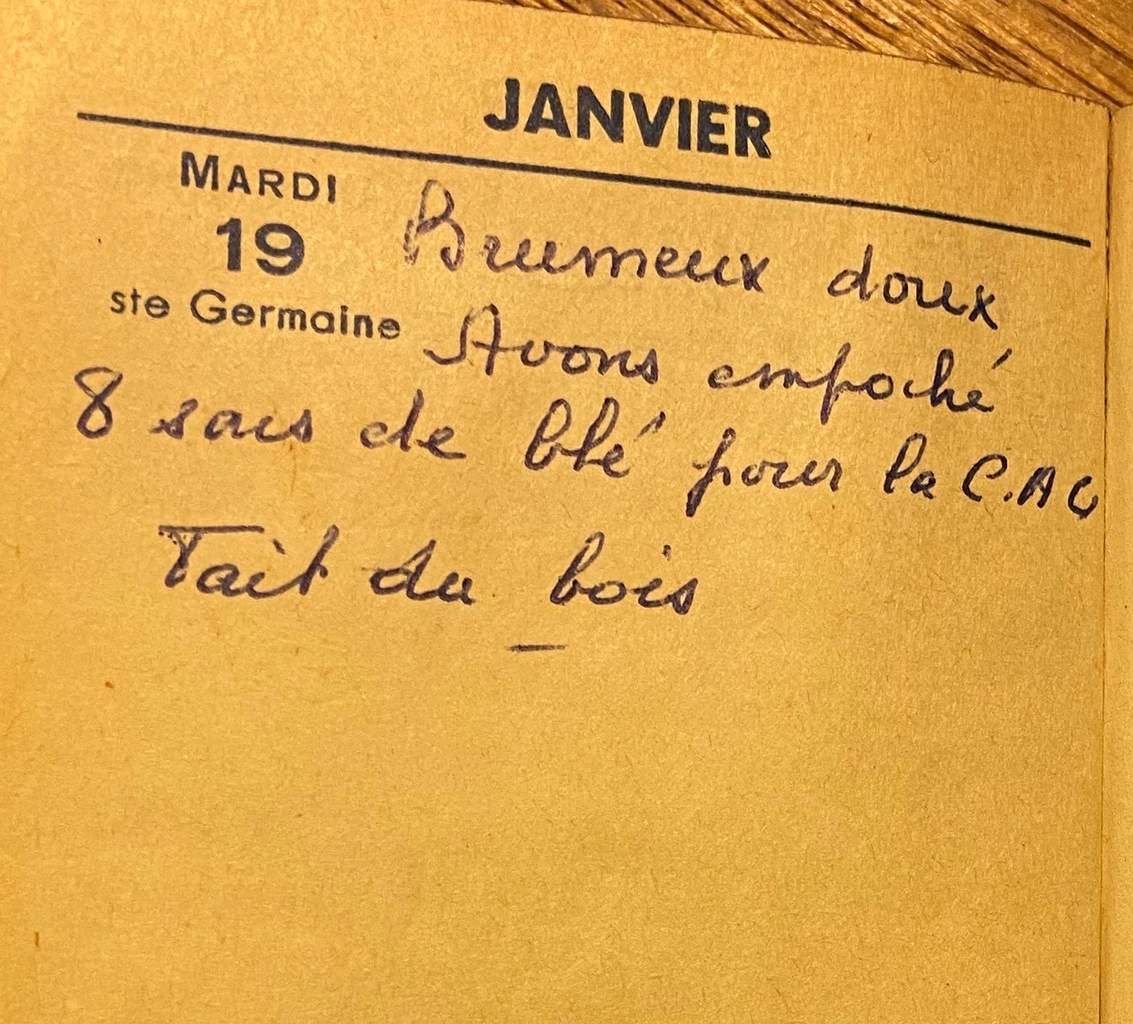 JANVIER
MARDI
19
ste Germaine
Brumeux doux
Avons empoché
8 sacs de blé pour la C.A.C
Fait du bois